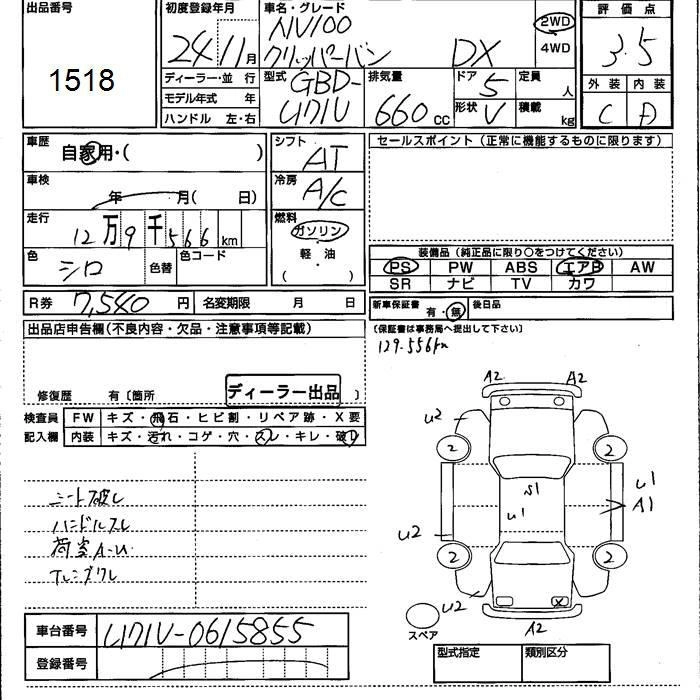 出品番号
1518
初度登録年月
24 11月
車名・グレード
NV100
クリッパーバン DX
2WD
4WD
評価点
3.5
ディーラー・並行
モデル年式 年
ハンドル 左・右
型式 GBD-
U71V
排気量
660 cc
ドア 5
形状 V
定員 人
積載 kg
外装 内装
C D
車歴
自家用・( )
車検
年 月( 日)
走行
12万9千566 km
色
シロ
色替
色コード
シフト
AT
冷房
A/C
燃料
ガソリン
・
軽・油
( )
セールスポイント(正常に機能するものに限ります)
装備品(純正品に限り○をつけてください)
PS PW ABS エアB AW
SR ナビ TV カワ
R券 7,540 円 名変期限 月 日
新車保証書 有・無 後日品
(保証書は事務局へ提出して下さい)
129.556km
出品店申告欄(不良内容・欠品・注意事項等記載)
修復歴 有〔箇所 〕
ディーラー出品
検査員
記入欄
FW キズ・飛石・ヒビ割・リペア跡・X要
内装 キズ・汚れ・コゲ・穴・スレ・キレ・破レ
シート破レ
ハンドルスレ
荷室A-U
A2 A2
U2
2 2
S1
U1
U1
A1
U2
2 2
U2
X
A2
スペア
車台番号 U71V-0615855
登録番号
型式指定 類別区分